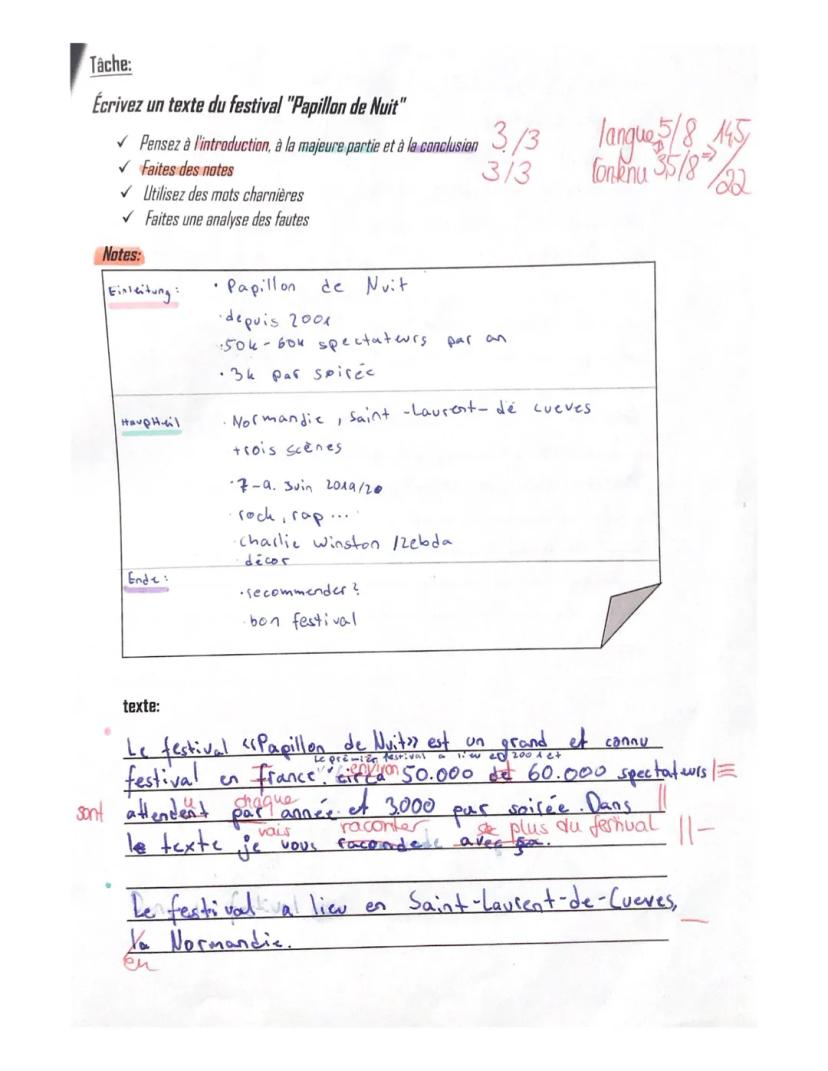 Tâche:
Écrivez un texte du festival "Papillon de Nuit"
✓ Pensez à l'introduction, à la majeure partie et à la conclusion 3/3
✓ Faites des notes 3/3
langue 5/8 14,5/22
Contenu 3,5/8 ⇒
✓ Utilisez des mots charnières
✓ Faites une analyse des fautes
Notes:
Einleitung: • Papillon de Nuit
• depuis 2001
• 50k - 60k spectateurs par an
• 3k par soirée
Hauptteil • Normandie, saint-Laurent-de cueves
trois scènes
• 7-9. Juin 2019/20
• rock, rap ...
• charlie winston / zebda
• décor
Ende:
• recommender?
• bon festival
texte:
Le festival «Papillon de Nuit» est un grand et connu
Le premièr festival a lieu en 2001 et
festival en france. circa environ 50.000 et 60.000 spectateurs
sont attendent u par chaque année et 3.000 par soirée. Dans
vais raconter plus du festival
le texte je vous avec ça.
Le festival a lieu en Saint-Laurent-de-Cueves,
la Normandie.
en